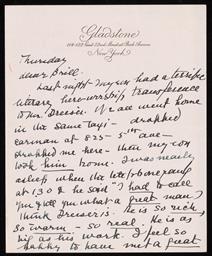 Gladstone
114-122 East 52nd Street at Park Avenue
New York
Thursday
dear Brill.
Last night my son had a terrific
literary hero-worship transference
to Mr. Dreiser. We all went home
in the same taxi - dropped
Lerman at 825 - 5th ave -
dropped me here - then my son
took him home. I was nearly
asleep when the telephone rang
at 1 30 & he said "I had to call
you & tell you what a great man, I
think Dreiser is. He is so rich,
so warm - so real. He is as
big as his work. I feel so
happy to have met a great